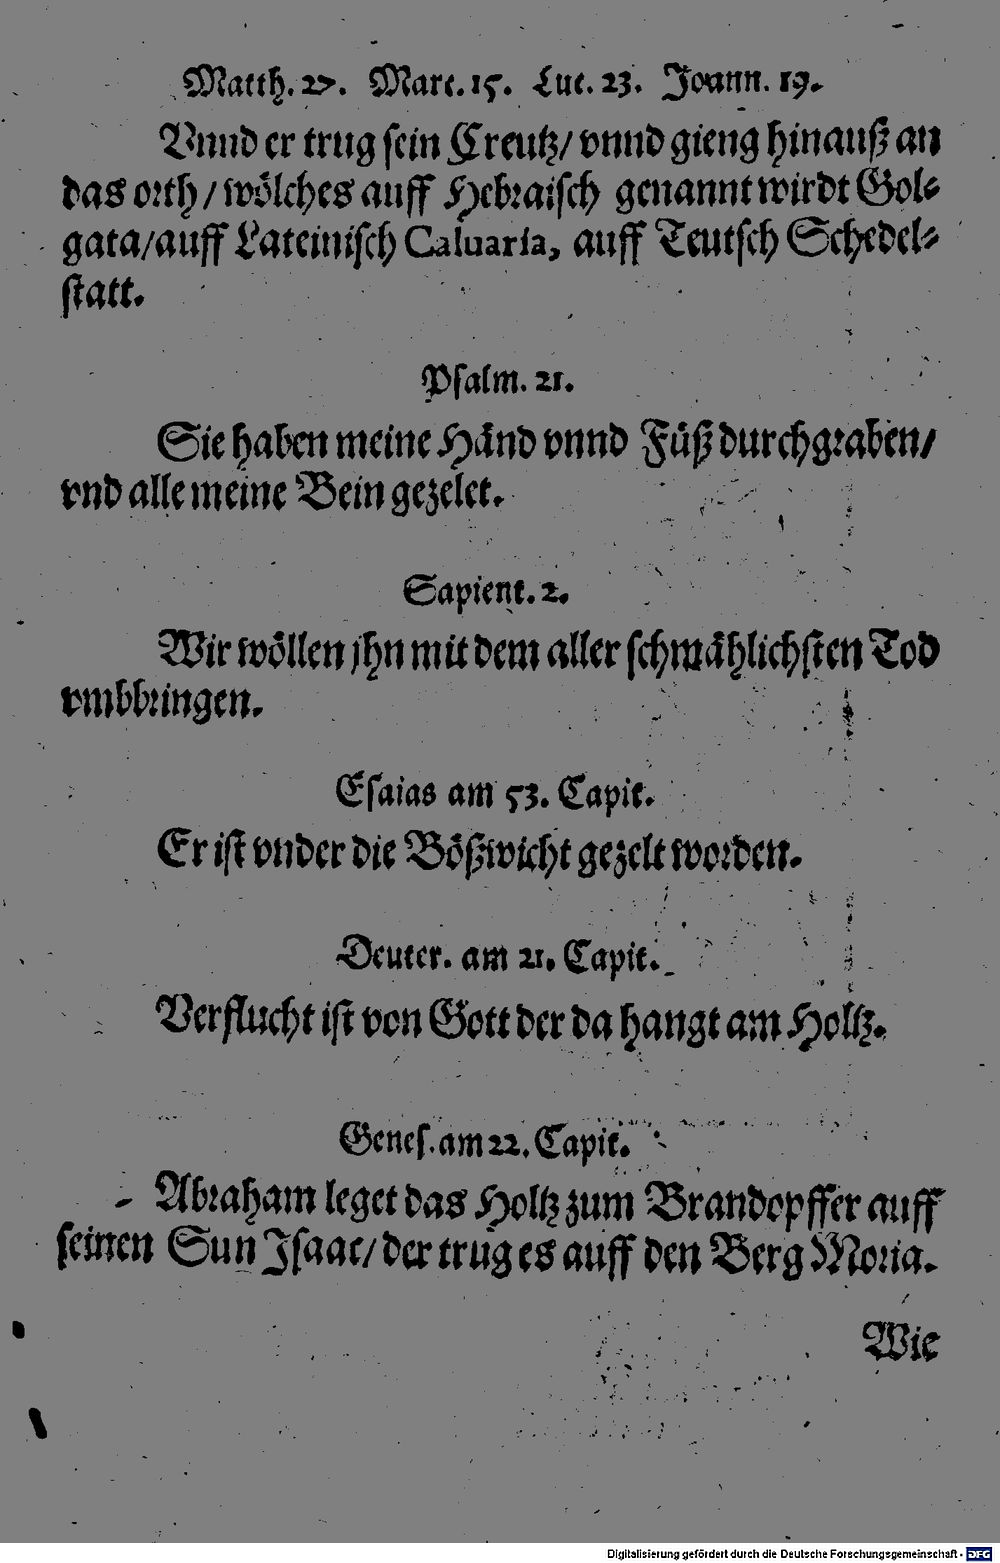 Matth. 27. Marc. 15. Luc. 23. Joann. 19.
Vnnd er trug sein Creutz/ vnnd gieng hinauß an
das orth/ wölches auff Hebraisch genannt wirdt Gol-
gata/ auff Lateinisch Caluaria, auff Teutsch Schedel-
statt.
Psalm. 21.
Sie haben meine Händ vnnd Füß durchgraben/
vnd alle meine Bein gezelet.
Sapient. 2.
Wir wöllen jhn mit dem aller schmählichsten Tod
vmbbringen.
Esaias am 53. Capit.
Er ist vnder die Bößwicht gezelt worden.
Deuter. am 21. Capit.
Verflucht ist von Gott der da hangt am Holtz.
Genes. am 22. Capit.
Abraham leget das Holtz zum Brandopffer auff
seinen Sun Isaac/ der trug es auff den Berg Moria.
Wie
Digitalisierung gefördert durch die Deutsche Forschungsgemeinschaft - DFG